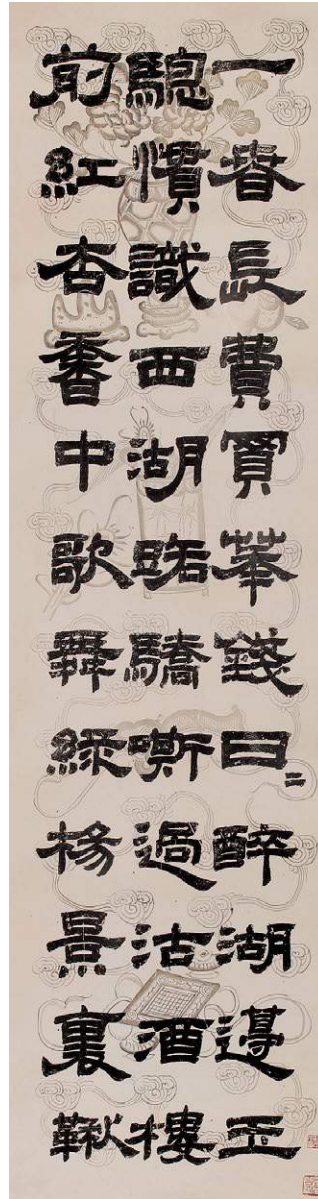 一春長費買華錢日二醉湖邊玉
驄慣識西湖路驕嘶過沽酒樓
前紅杏香中歌舞綠楊景裏鞦